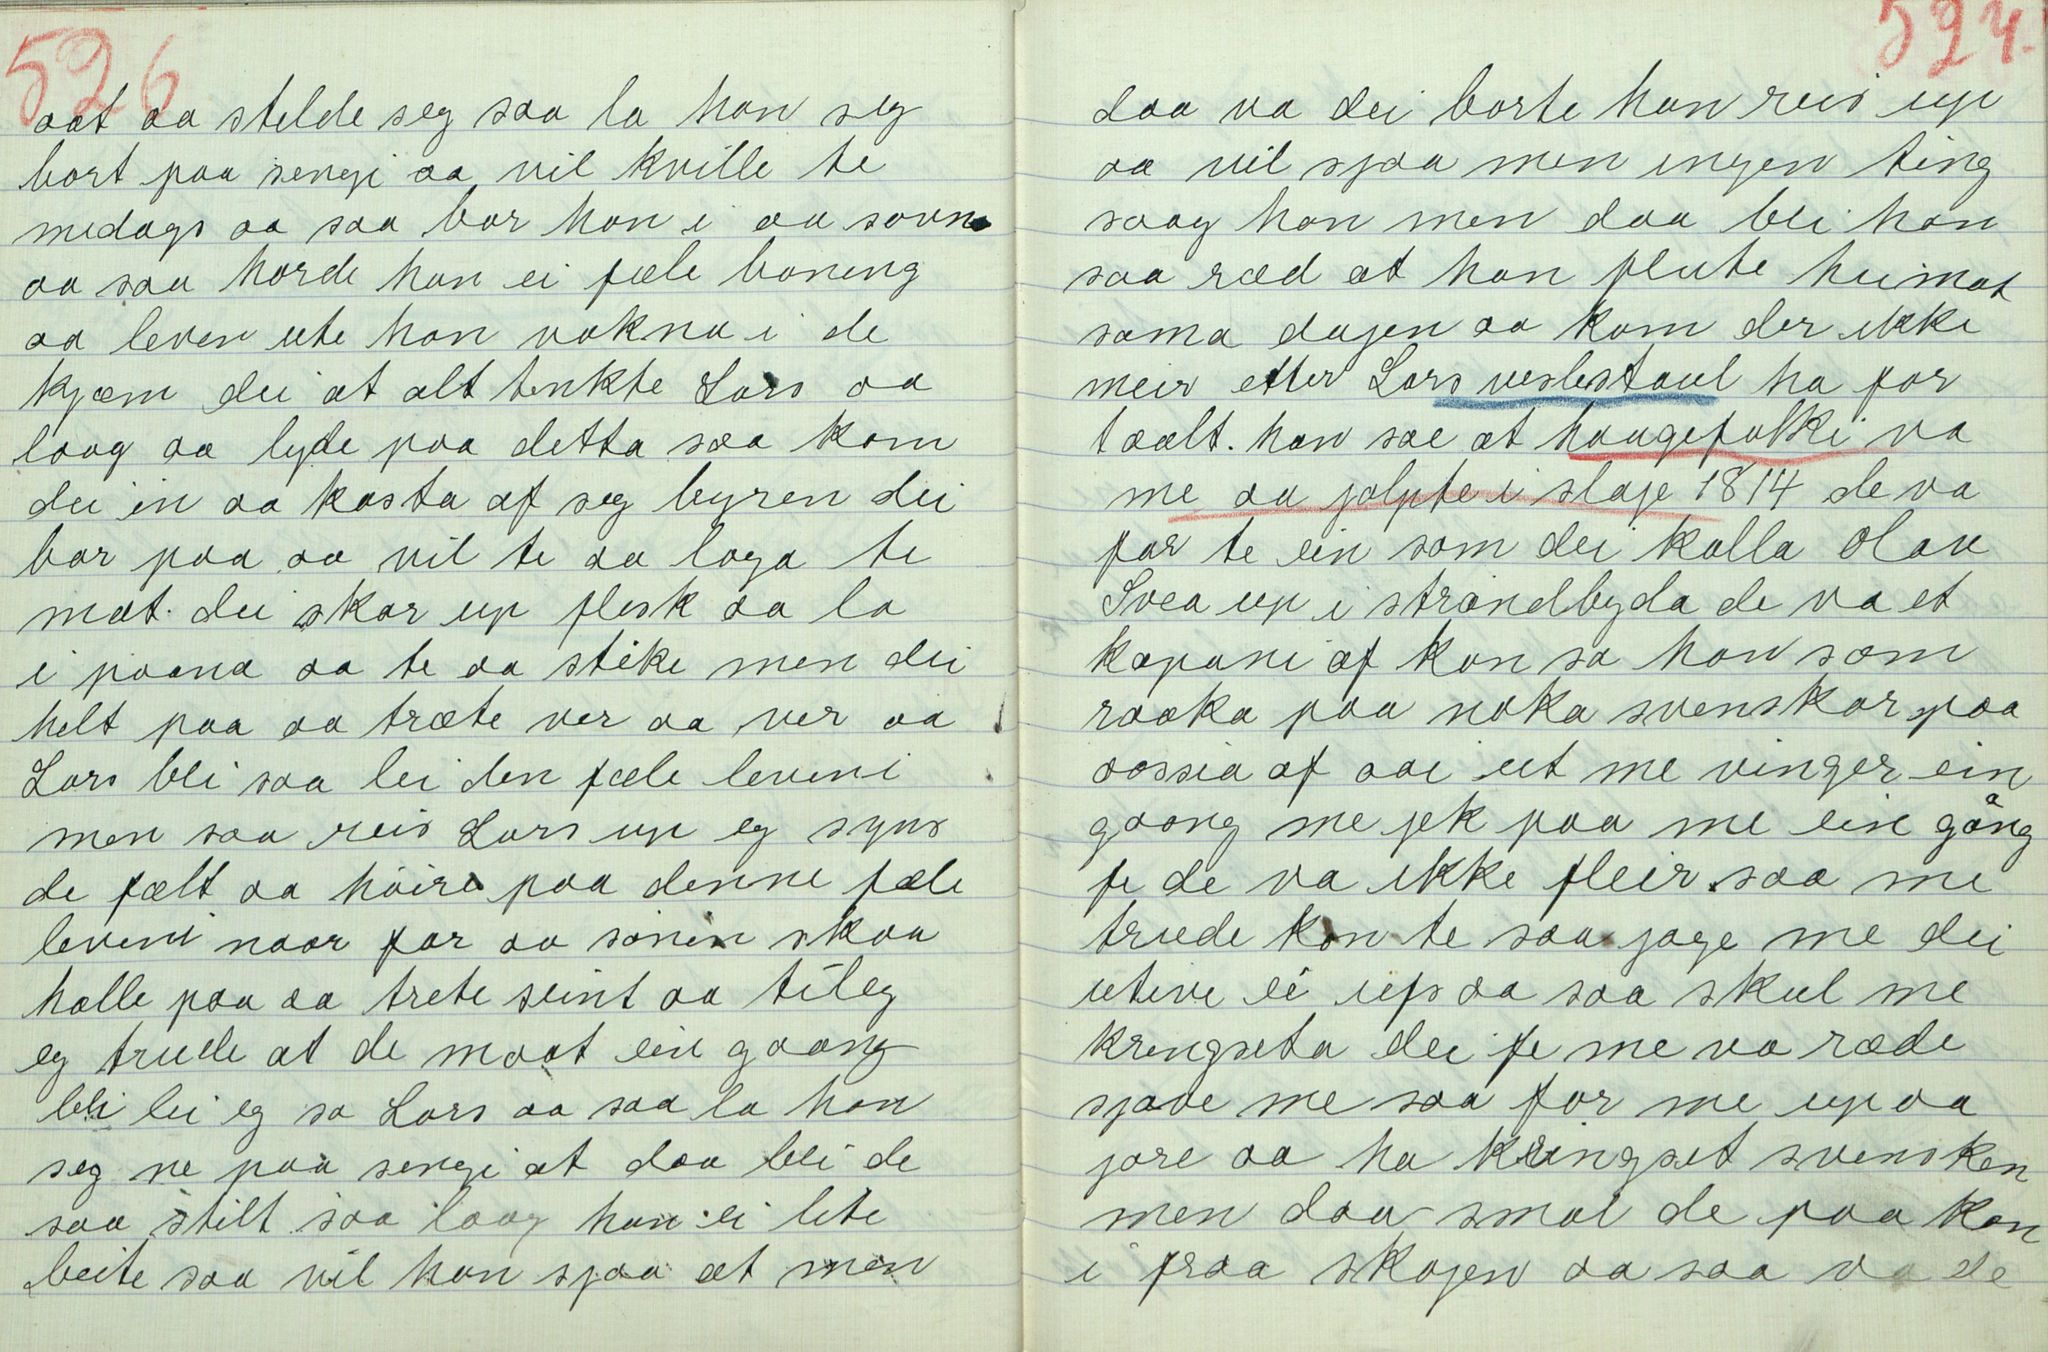 526
aat aa stelde seg saa la han seg
bort paa sengi aa vil kville te
medags aa saa bar han i aa sovne
aa saa horde han ei fæle boneng
aa leven ute han vakna i de
kjæm dei at alt tenkte Lars aa
laag aa lyde paa detta saa kom
dei in aa kasta af seg byren dei
bar paa aa vil te aa laga te
mat. dei skar up flesk aa la
i paana aa te aa steke men dei
helt paa aa træte ver aa ver aa
Lars bli saa lei den fæle leveni
men saa reis Lars up eg syns
de fælt aa höire paa denne fæle
leveni naar far aa sönen skaa
halle paa aa trete seint aa tileg
eg trude at de maat ein gaang
bli lei eg sa Lars aa saa la han
seg ne paa sengi at daa bli de
saa stilt saa laag han ei lite
beite saa vil han sjaa et men
527
daa va dei borte han reis up
aa vil sjaa men ingen ting
saag han men daa bli han
saa ræd at han flute heimat
sama dagen aa kom der ikke
meir etter Lars veslestaul ha for
taalt. han sae at haugefolki va
me aa jalpte i slaje 1814 de va
far te ein som dei kalla Olau
Svea up i strandbyda de va et
kapani af kon sa han som
raaka paa noka svenskar paa
aassia af aai ut me vinger ein
gaang me jek paa me ein gång
fe de va ikke fleir saa me
trude kon te saa jage me dei
utive ei ups aa saa skul me
kringseta dei fe me va ræde
sjave me saa for me up aa
jore aa ha kringset svensken
men daa smal de paa kon
i fraa skogen aa saa va de